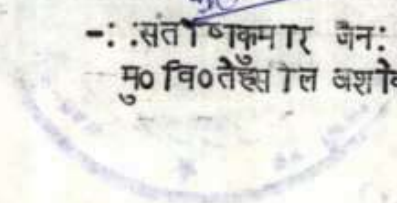 -: :संतोषकुमार जैन:
मु० वि०तेहसील अशोक